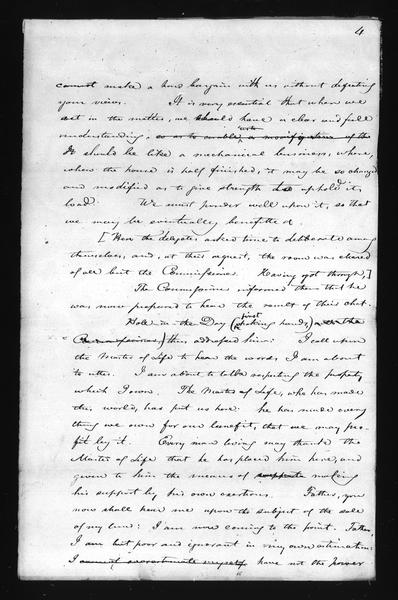 4
cannot make a hard bargain with us without defeating
your views. It is very essential that when we
act in the matter, we should have a clear and full
understanding, so as to enable us to modify
It should be like a mechanical business, where,
when the house is half finished, it may be so changed
and modified as to give strength to uphold its
load. We must ponder well upon it, so that
we may be eventually benefitted
[Here the delegates asked time to deliberate among
themselves, and, at their request, the room was cleared
of all but the Commissioner. Having got through,]
The Commissioner informed them that he
was now prepared to hear the result of their
Hole-in the Day (first shaking hands) with the
Commissioner) thus addressed him: I call upon
the Master of Life to hear the words I am about
to utter. I am about to talk respecting the property
which I own. The Master of Life, who has made
this world, has put us here: he has made every
thing we own for our benefit, that we may pro-
fit by it. Every man living may thank the
Master of Life that he has placed him here, and
given to him the means of support making
his support by his own exertions. Father, you
now shall hear me upon the subject of the sale
of my land: I am now coming to the point. Father,
I am but poor and ignorant in my own estimation:
I cannot overestimate myself have not the power